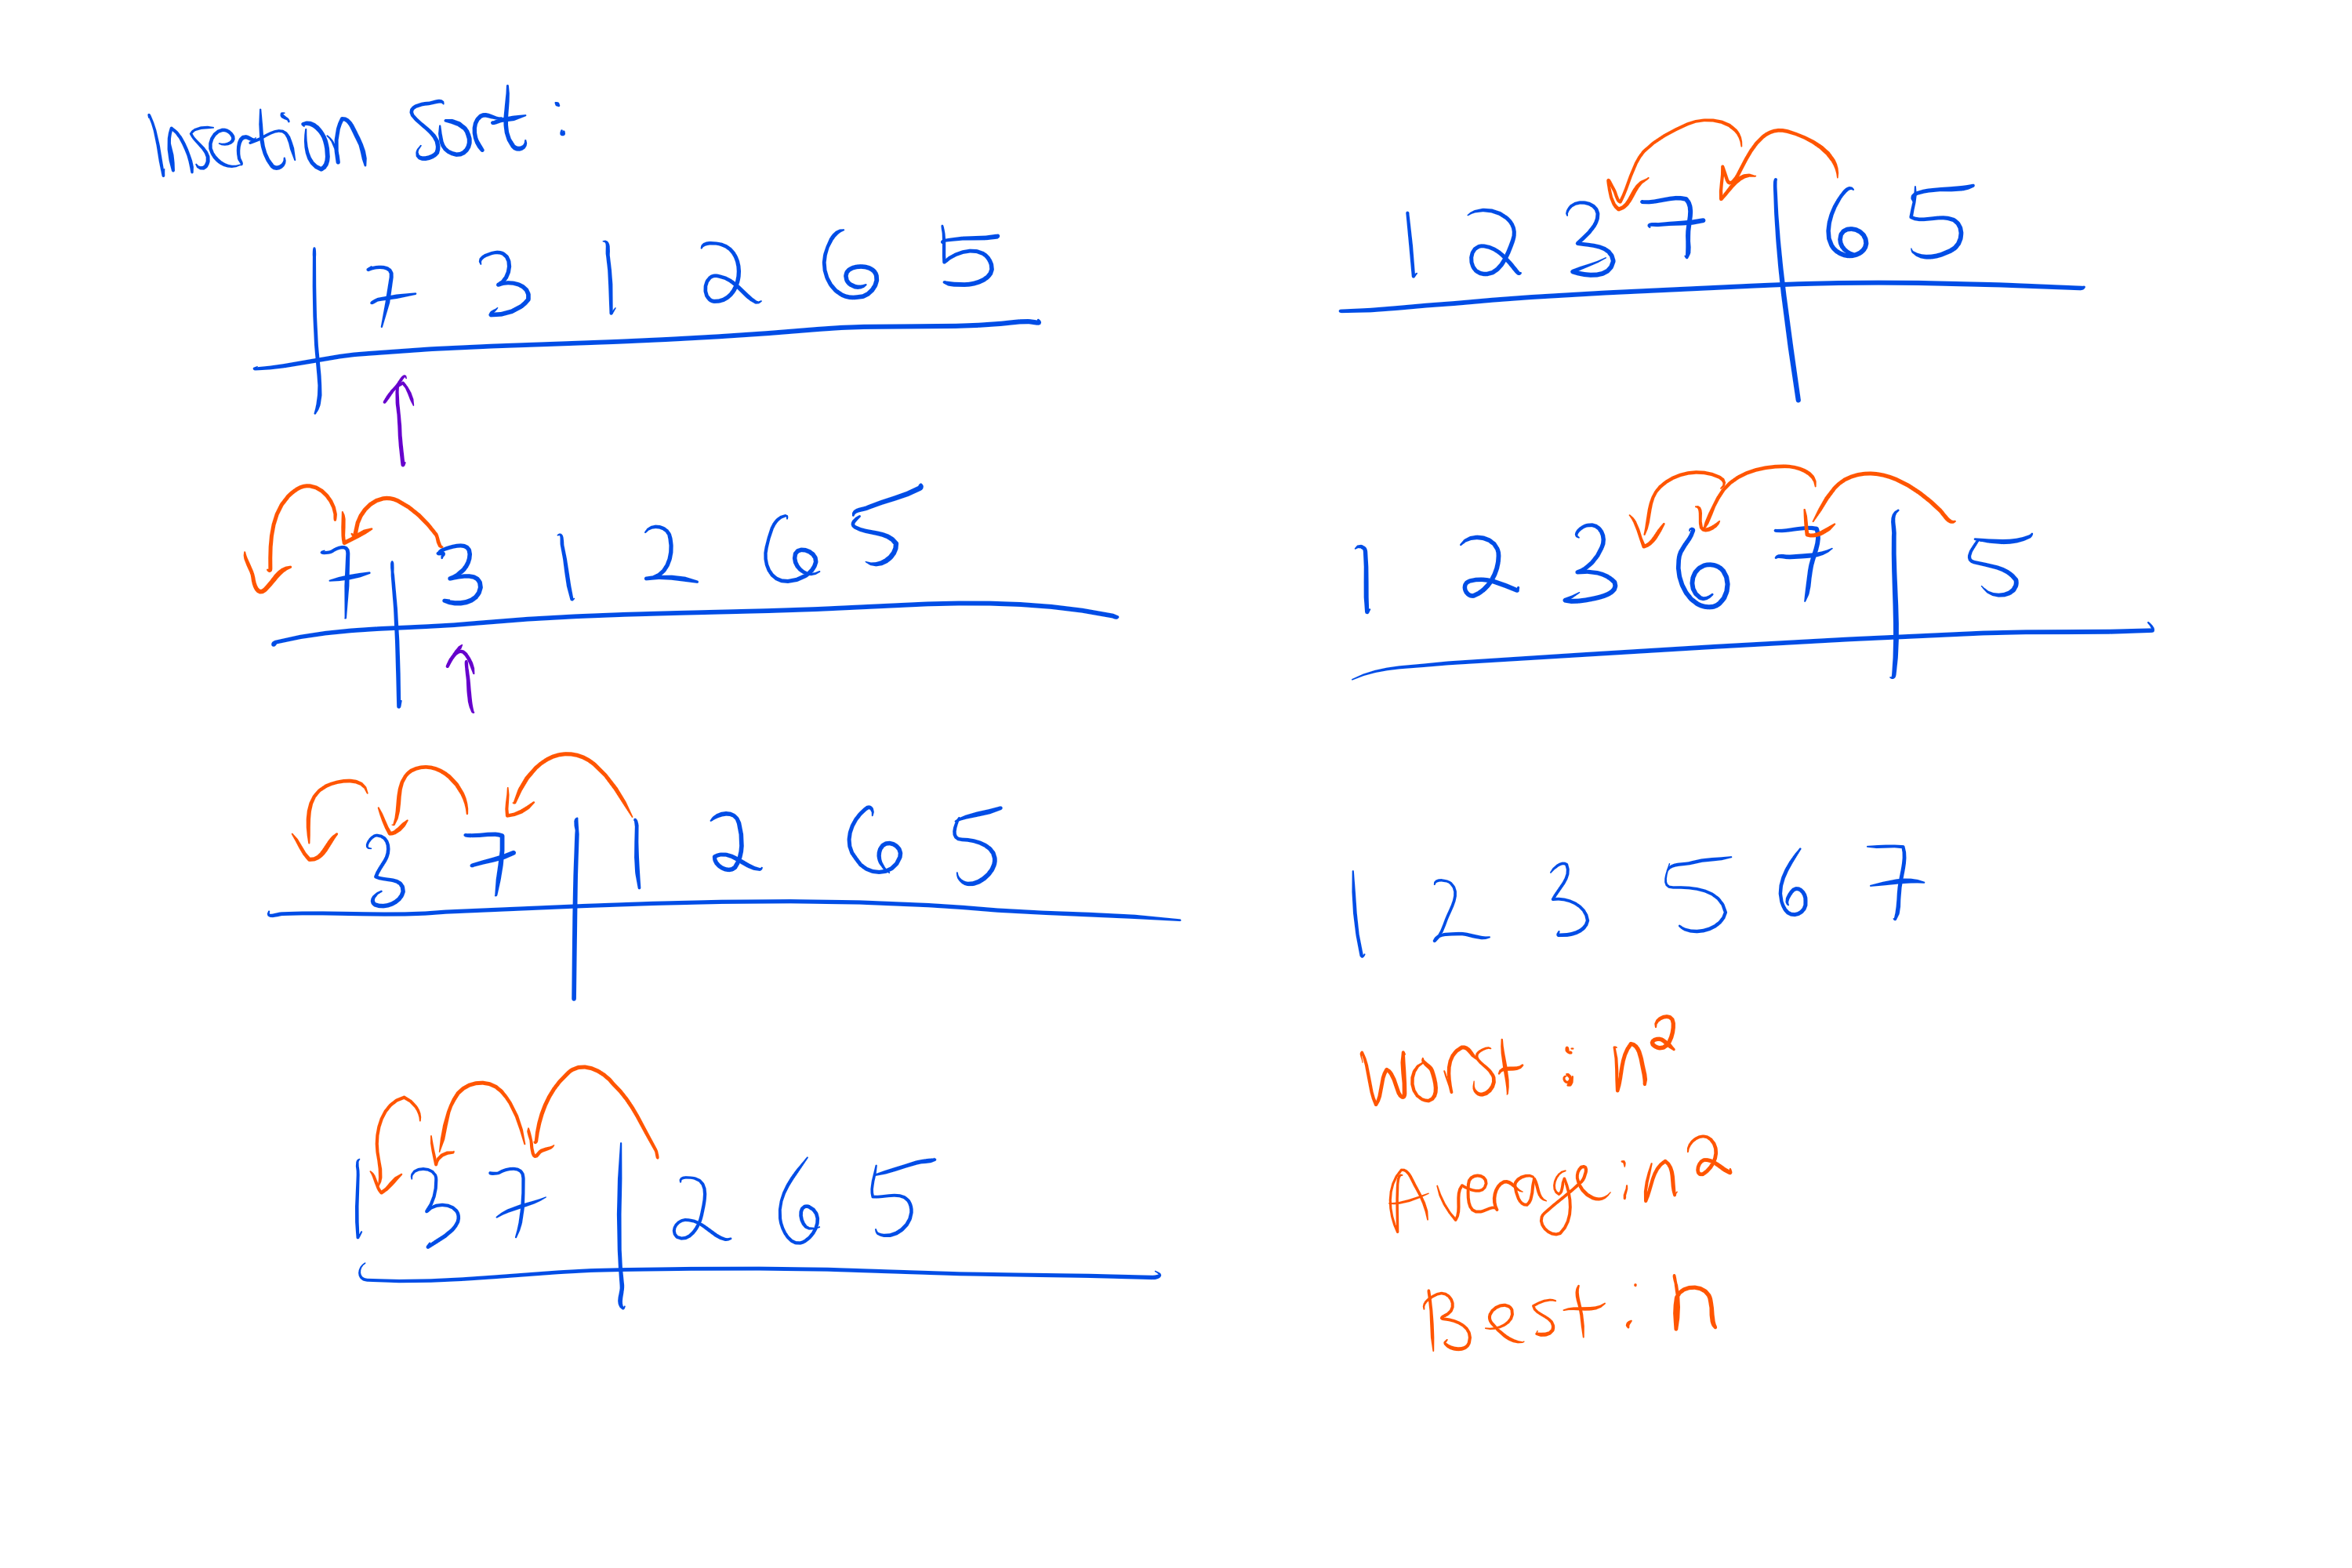 Insertion Sort :
7 3 1 2 6 5
7 3 1 2 6 5
3 7 1 2 6 5
1 3 7 2 6 5
1 2 3 7 6 5
1 2 3 6 7 5
1 2 3 5 6 7
Worst : n²
Average : n²
Best : n